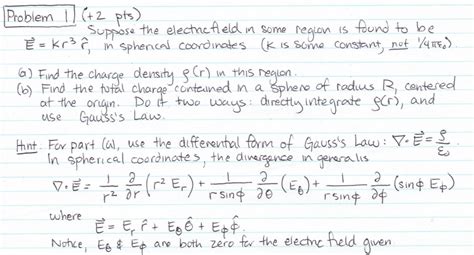 Problem 1 (+2 pts)
Suppose the electric field in some region is found to be
E⃗ = kr³ r̂, in spherical coordinates (k is some constant, not 1/4πε₀)
(a) Find the charge density ρ(r) in this region.
(b) Find the total charge contained in a sphere of radius R, centered
at the origin. Do it two ways: directly integrate ρ(r), and
use Gauss's Law.
Hint. For part (a), use the differential form of Gauss's Law: ∇·E⃗ = ρ/ε₀
In spherical coordinates, the divergence in general is
∇·E⃗ = 1/r² ∂/∂r (r² Eᵣ) + 1/(r sinϕ) ∂/∂θ (E_θ) + 1/(r sinϕ) ∂/∂ϕ (sinϕ E_ϕ)
where
E⃗ = Eᵣ r̂ + E_θ θ̂ + E_ϕ ϕ̂.
Notice, E_θ & E_ϕ are both zero for the electric field given